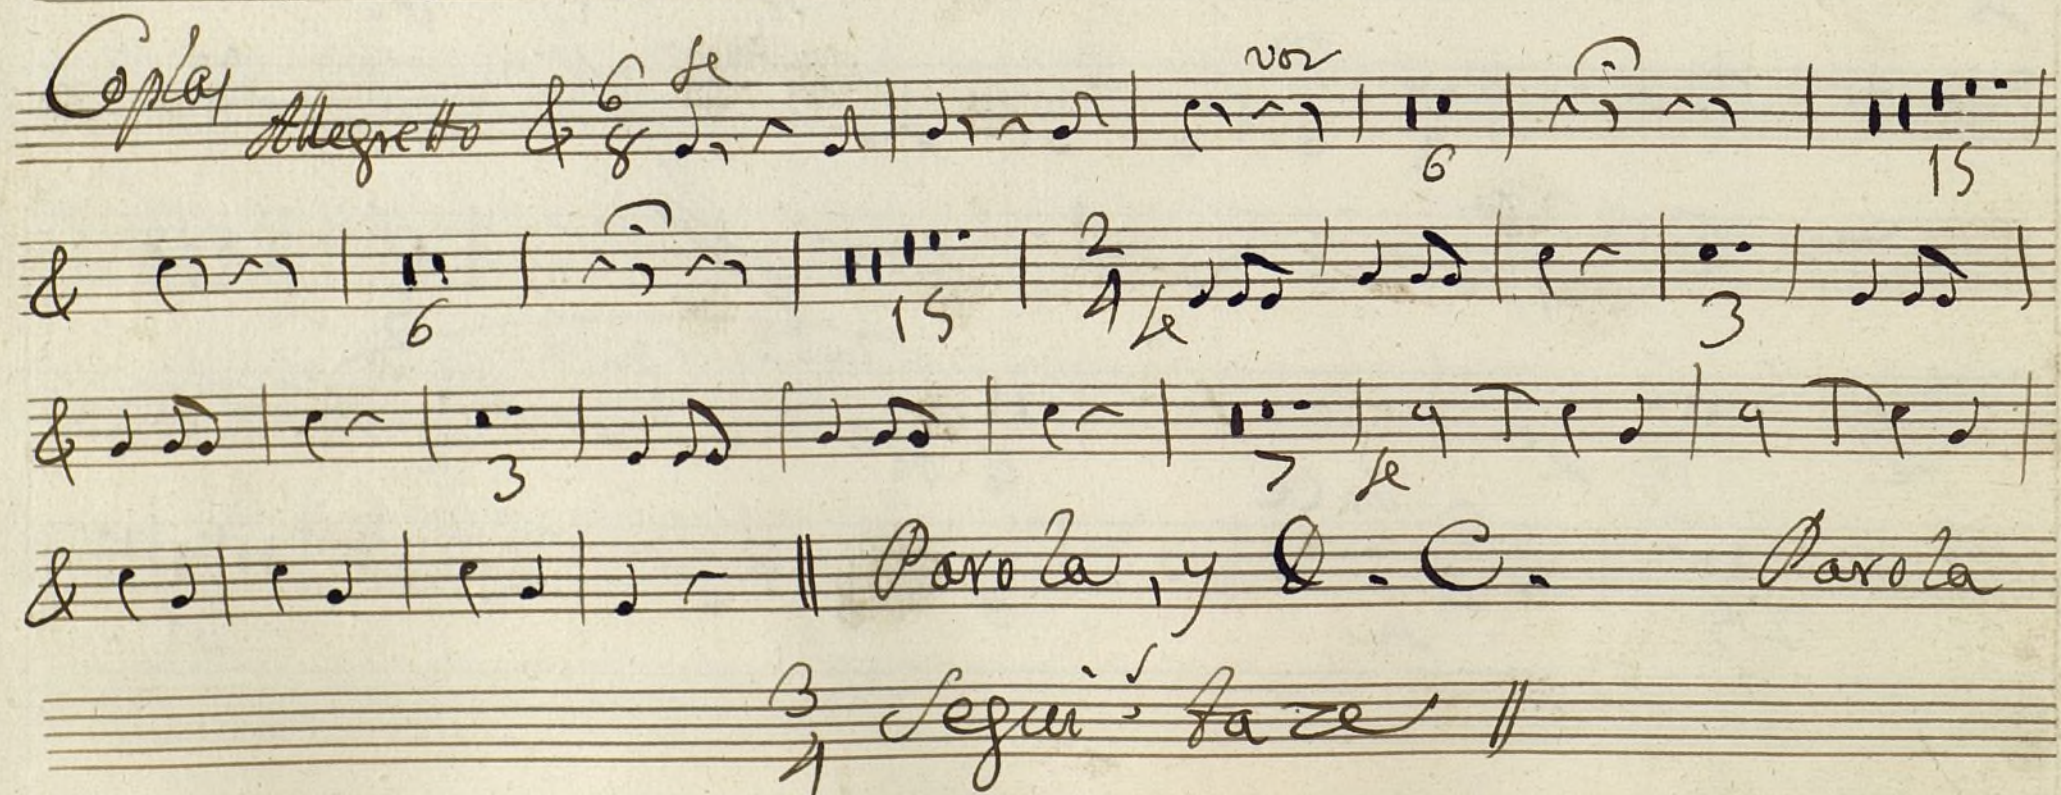 Coplas Allegretto 6 8 fe voz 6 15
6 15 2 4 fe 3
3 7 fe
Parola, y D. C. Parola
3 4 Segui.s taze